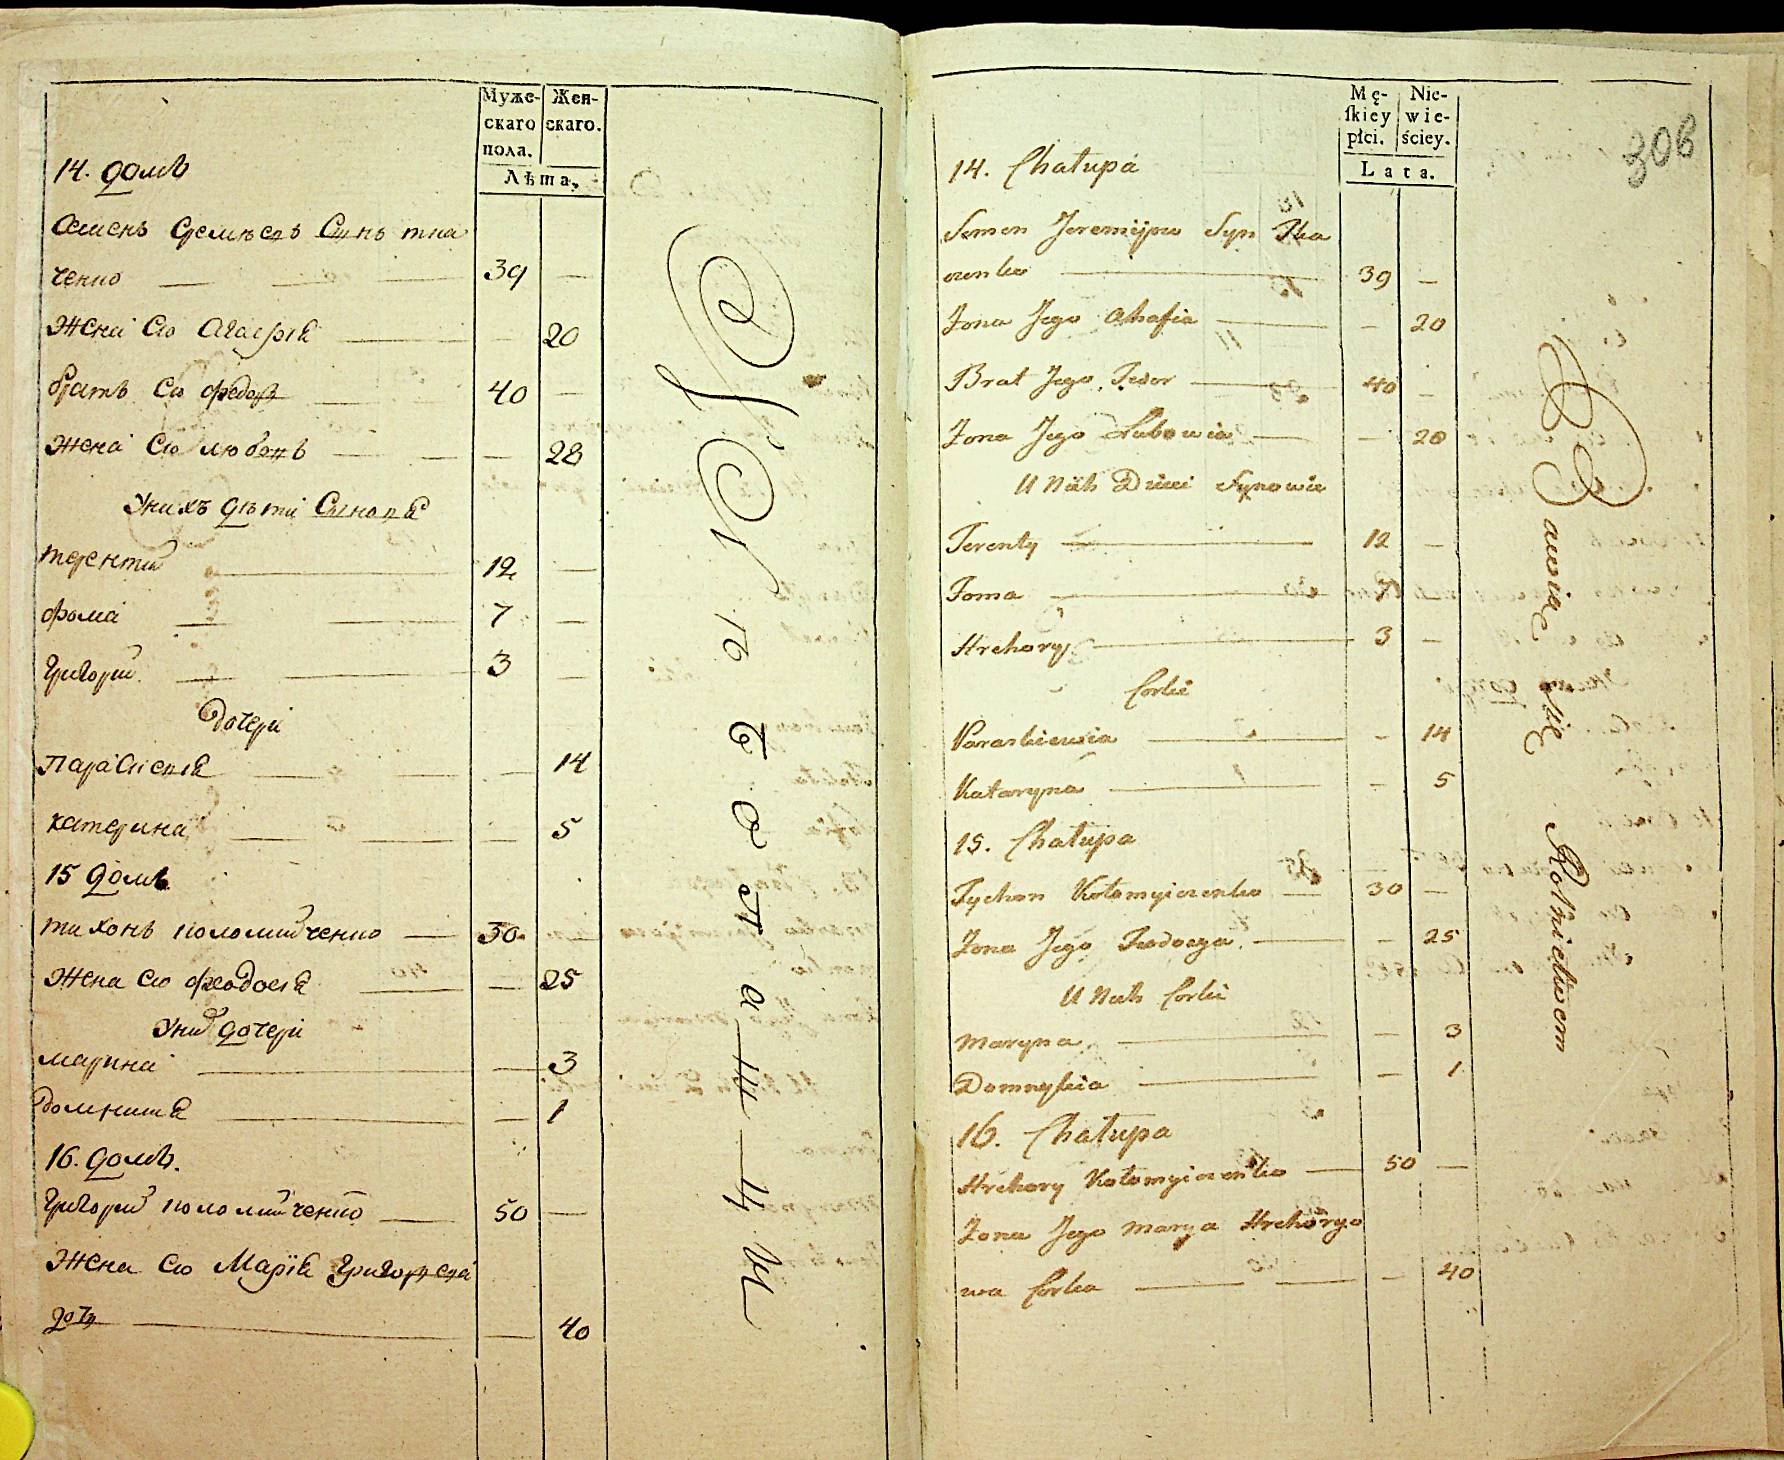 Муже-
скаго
пола.
Жен-
скаго.
Лѣта,
14. домъ
Семенъ Еремѣевъ Сынъ тка
ченко 39 —
Жена Его Агафія — 20
братъ Его Федоръ 40 —
Жена Его любовь — 28
Унихъ дѣти Сыновя
терентій 12 —
фома 7 —
григорій 3 —
дочери
Параскевія — 14
катерина — 5
15 домъ
тихонъ коломийченко 30 —
Жена Его феодосія — 25
Унихъ дочери
марина — 3
домникія — 1
16. домъ.
григорій коломийченко 50 —
Жена Его Марія григорьева
дочь — 40
Mę-
skiey
płci.
Nie-
wie-
ściey.
Lata.
306
14. Chałupa
Semen Jeremijew Syn Tka
czenko 39 —
Żona Jego Ahafia — 20
Brat Jego Fedor 40 —
Żona Jego Lubowia — 28
U Nich Dzieci Synowie
Terenty 12 —
Foma 7 —
Hrehory 3 —
Corki
Paraskiewia — 14
Kataryna — 5
15. Chałupa
Tychon Kołomyiczenko 30 —
Żona Jego Feodosya — 25
U Nich Corki
Maryna — 3
Domnykia — 1
16. Chałupa
Hrehory Kołomyiczenko 50 —
Żona Jego Marya Hrehorjo
wa Corka — 40
Bawiące się Rolnictwem